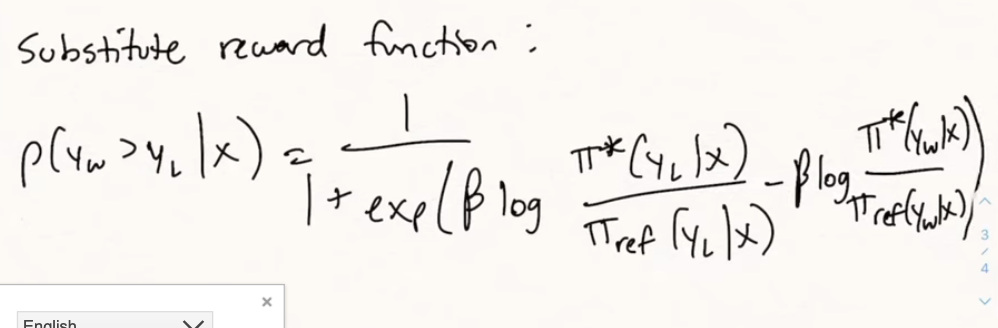 Substitute reward function :
p(y_w > y_L | x) = 1 / (1 + exp(β log π*(y_L|x) / π_ref(y_L|x) - β log π*(y_w|x) / π_ref(y_w|x)))
3
/
4
×
English